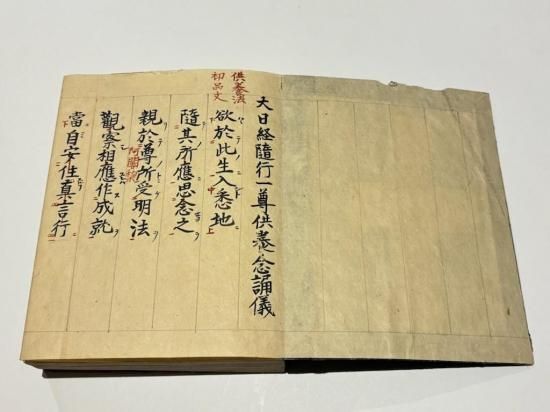 大日経隨行一尊供養念誦儀
供養法
初品文
欲於此生入悉地
隨其所應思念之
親於尊所受明法
阿闍梨
觀察相應作成就
當自安住真言行